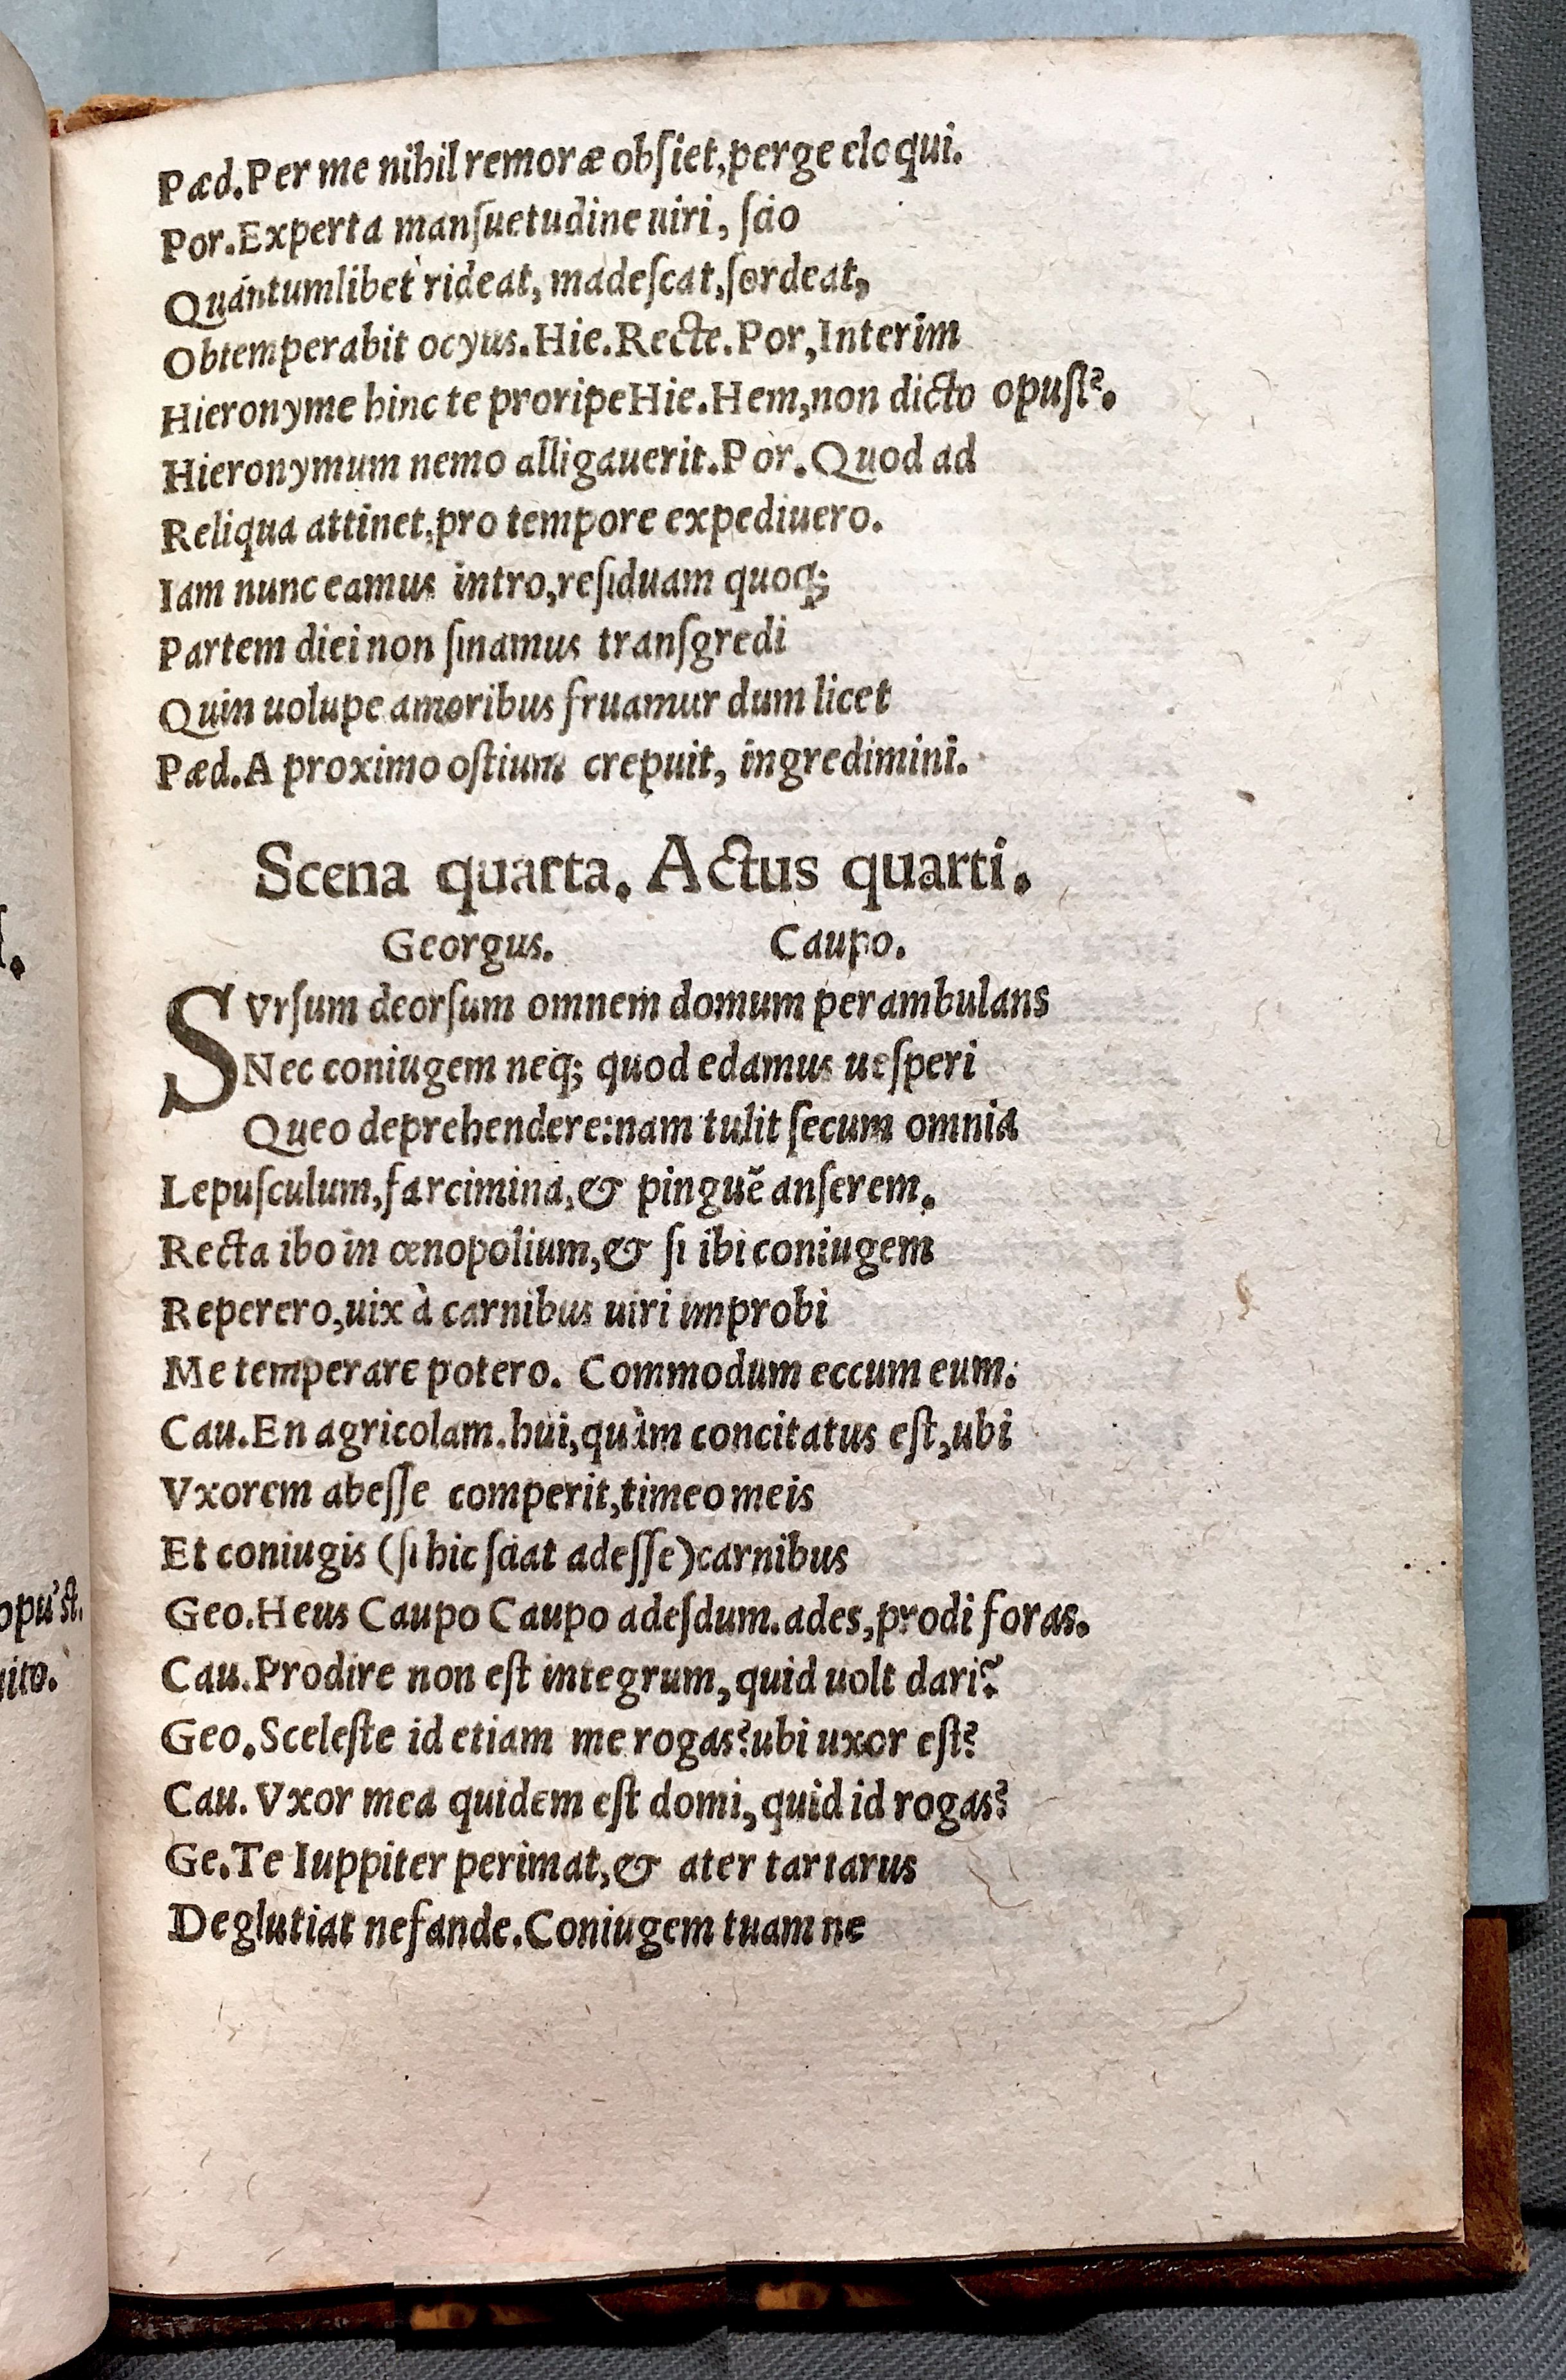 Pæd.Per me nihil remoræ obſiet,perge eloqui.
Por.Experta manſuetudine uiri, ſcio
Quántumlibet rideat, madeſcat,ſordeat,
Obtemperabit ocyus.Hie.Recte.Por,Interim
Hieronyme hinc te proripeHie.Hem,non dicto opuſt?.
Hieronymum nemo alligauerit.Por.Quod ad
Reliqua attinet,pro tempore expediuero.
Iam nunc eamus intro,reſiduam quoq;
Partem diei non ſinamus tranſgredi
Quin uolupe amoribus fruamur dum licet
Pæd.A proximo oſtium crepuit, ingredimini.
Scena quarta. Actus quarti.
Georgus. Caupo.
SVrſum deorſum omnem domum perambulans
Nec coniugem neq; quod edamus ueſperi
Queo deprehendere:nam tulit ſecum omnia
Lepuſculum,farcimina,& pinguẽ anſerem.
Recta ibo in œnopolium,& ſi ibi coniugem
Reperero,uix à carnibus uiri improbi
Me temperare potero. Commodum eccum eum:
Cau.En agricolam.hui,quàm concitatus eſt,ubi
Vxorem abeſſe comperit,timeo meis
Et coniugis (ſi hic ſciat adeſſe)carnibus
Geo.Heus Caupo Caupo adeſdum.ades,prodi foras.
Cau.Prodire non eſt integrum,quid uolt dari?
Geo.Sceleſte id etiam me rogas?ubi uxor eſt?
Cau.Vxor mea quidem eſt domi,quid id rogas?
Ge.Te Iuppiter perimat,& ater tartarus
Deglutiat nefande.Coniugem tuam ne